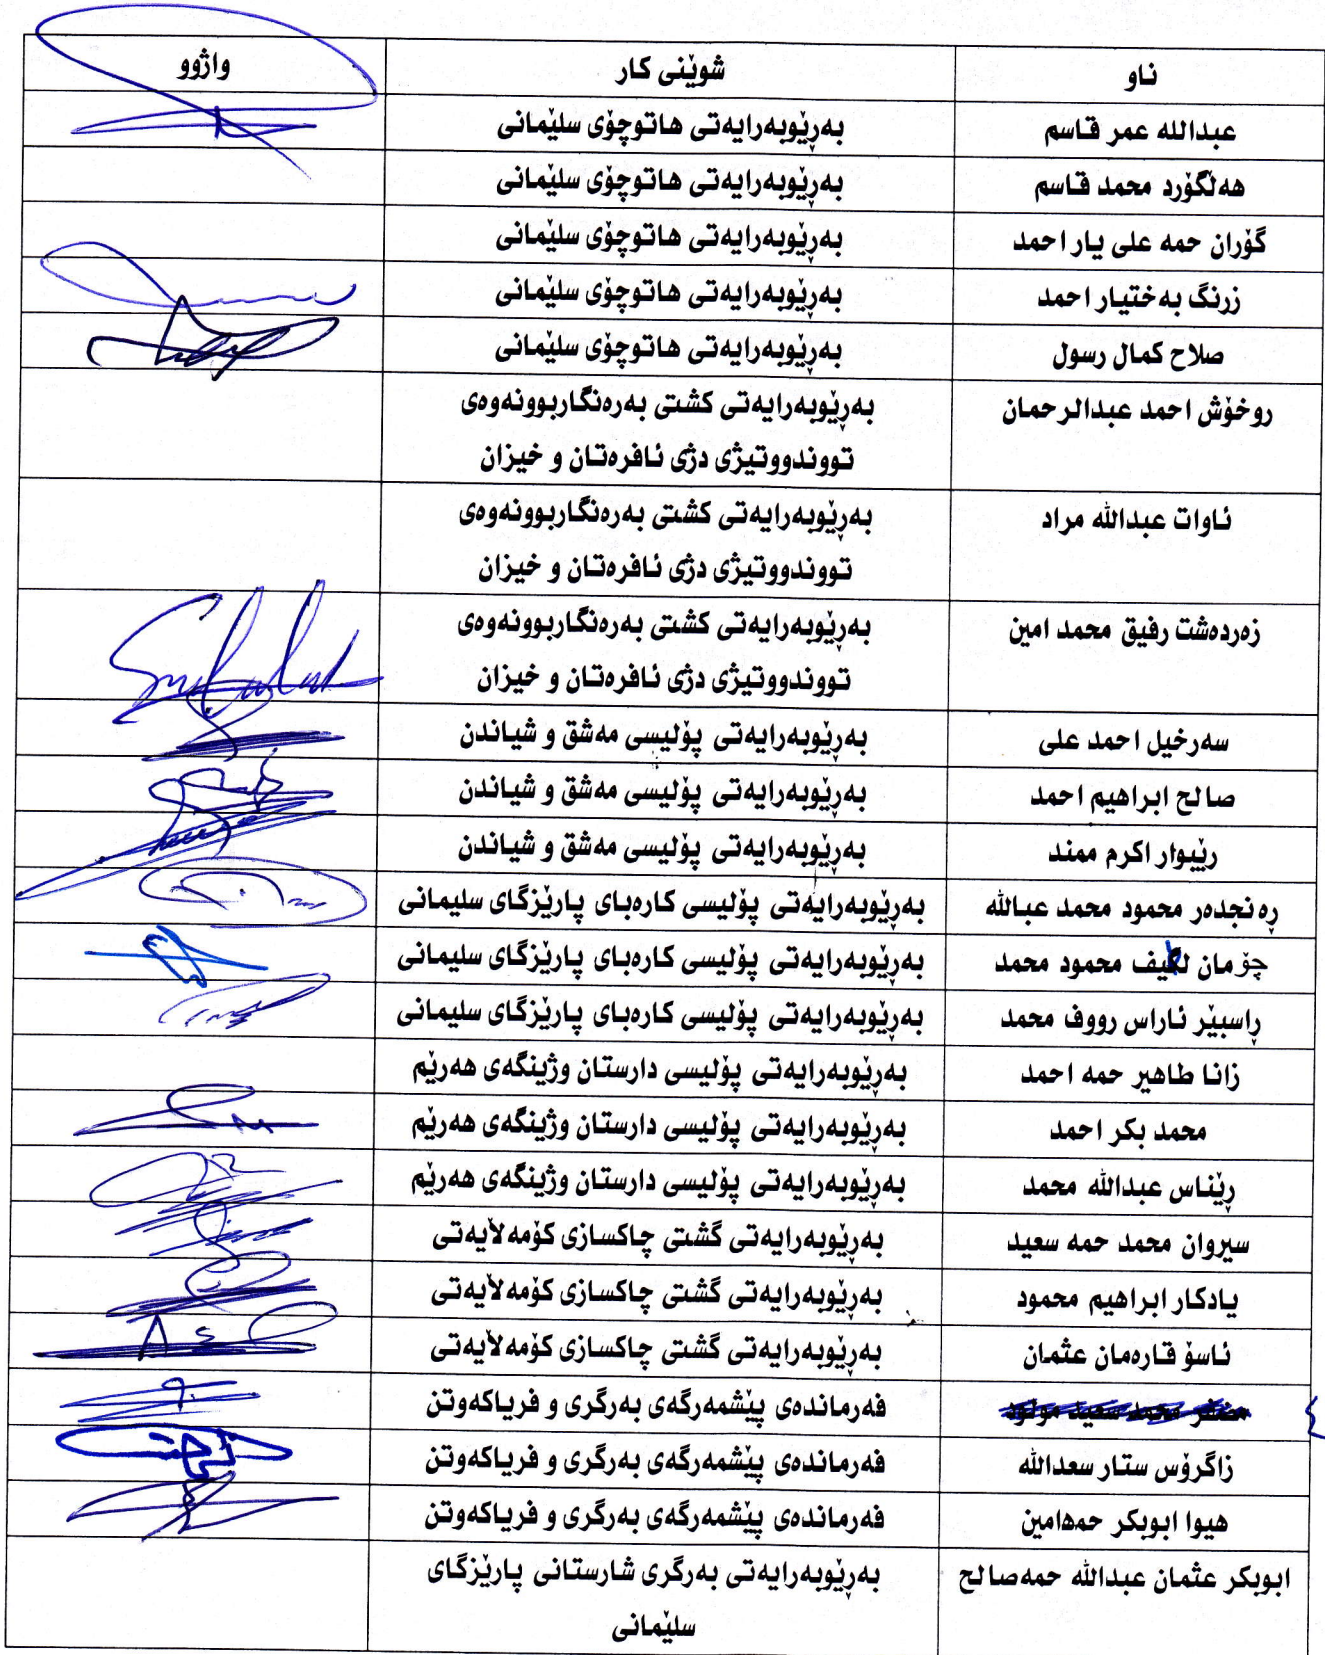 ناو شوێنی کار واژوو
عبدالله عمر قاسم بەڕێوبەرایەتی هاتوچۆی سلێمانی
هەڵگۆرد محمد قاسم بەڕێوبەرایەتی هاتوچۆی سلێمانی
گۆران حمه علی یار احمد بەڕێوبەرایەتی هاتوچۆی سلێمانی
زرنگ بەختیار احمد بەڕێوبەرایەتی هاتوچۆی سلێمانی
صلاح کمال رسول بەڕێوبەرایەتی هاتوچۆی سلێمانی
روخۆش احمد عبدالرحمان بەڕێوبەرایەتی کشتی بەرەنگاربوونەوەی
تووندووتیژی دژی ئافرەتان و خیزان
ئاوات عبدالله مراد بەڕێوبەرایەتی کشتی بەرەنگاربوونەوەی
تووندووتیژی دژی ئافرەتان و خیزان
زەردەشت رفیق محمد امین بەڕێوبەرایەتی کشتی بەرەنگاربوونەوەی
تووندووتیژی دژی ئافرەتان و خیزان
سەرخیل احمد علی بەڕێوبەرایەتی پۆلیسی مەشق و شیاندن
صالح ابراهیم احمد بەڕێوبەرایەتی پۆلیسی مەشق و شیاندن
رێبوار اکرم ممند بەڕێوبەرایەتی پۆلیسی مەشق و شیاندن
ڕەنجدەر محمود محمد عبالله بەڕێوبەرایەتی پۆلیسی کارەبای پارێزگای سلیمانی
چۆمان لطیف محمود محمد بەڕێوبەرایەتی پۆلیسی کارەبای پارێزگای سلیمانی
ڕاسبێر ئاراس رووف محمد بەڕێوبەرایەتی پۆلیسی کارەبای پارێزگای سلیمانی
زانا طاهیر حمه احمد بەڕێوبەرایەتی پۆلیسی دارستان وژینگەی هەرێم
محمد بکر احمد بەڕێوبەرایەتی پۆلیسی دارستان وژینگەی هەرێم
ڕێناس عبدالله محمد بەڕێوبەرایەتی پۆلیسی دارستان وژینگەی هەرێم
سیروان محمد حمه سعید بەڕێوبەرایەتی گشتی چاکسازی کۆمەڵایەتی
یادکار ابراهیم محمود بەڕێوبەرایەتی گشتی چاکسازی کۆمەڵایەتی
ئاسۆ قارەمان عثمان بەڕێوبەرایەتی گشتی چاکسازی کۆمەڵایەتی
محمد سعید مولود فەرماندەی پێشمەرگەی بەرگری و فریاکەوتن
زاگرۆس ستار سعدالله فەرماندەی پێشمەرگەی بەرگری و فریاکەوتن
هیوا ابوبکر حمەامین فەرماندەی پێشمەرگەی بەرگری و فریاکەوتن
ابوبکر عثمان عبدالله حمەصالح بەڕێوبەرایەتی بەرگری شارستانی پارێزگای
سلێمانی